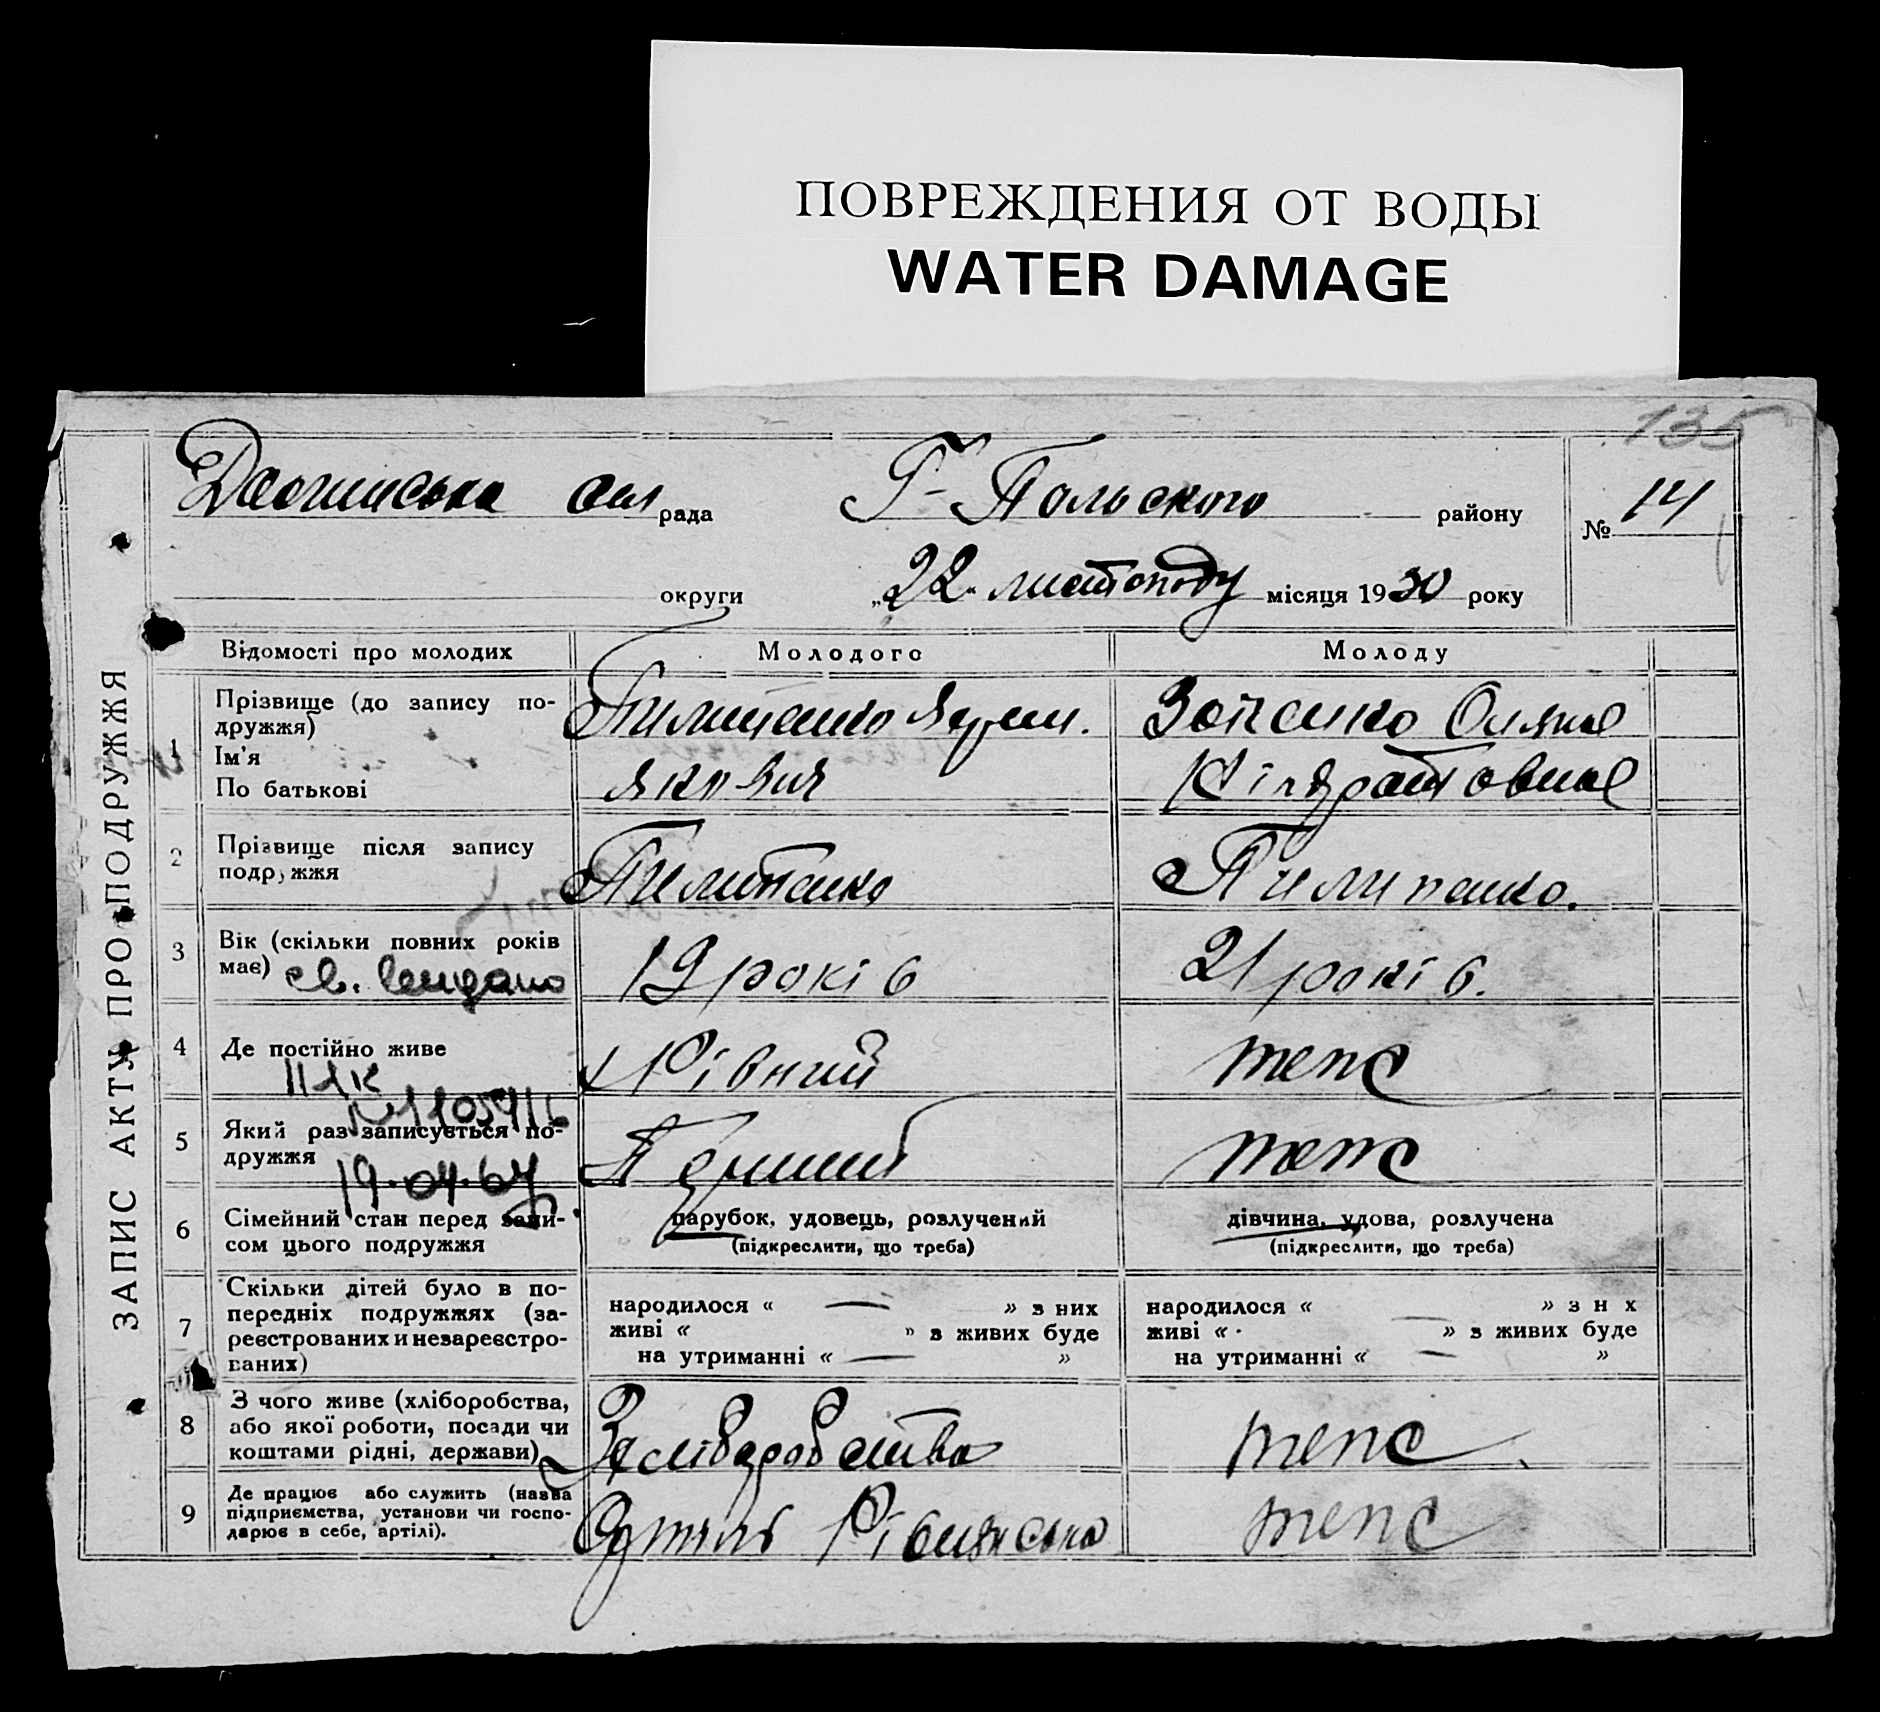 ПОВРЕЖДЕНИЯ ОТ ВОДЫ
WATER DAMAGE
135
рада
Г-Польского району
№ 14
округи
„22" листопаду місяця 1930 року
ЗАПИС АКТУ ПРО ПОДРУЖЖЯ
Відомості про молодих
Молодого
Молоду
1
Прізвище (до запису по-
дружжя)
Ім'я
По батькові
Пилипенко
Якович
Оляна
Кіндратовна
2
Прізвище після запису
подружжя
Пилипенко
Пилипенко.
3
Вік (скільки повних років
має)
св. видано
19 років
21 років.
4
Де постійно живе
Рівний
теж
ІІ ЛК
№ 1105416
19.04.67
5
Який раз записується по-
дружжя
Перший
теж
6
Сімейний стан перед запи-
сом цього подружжя
парубок, удовець, розлучений
(підкреслити, що треба)
дівчина, удова, розлучена
(підкреслити, що треба)
7
Скільки дітей було в по-
передніх подружжях (за-
реєстрованих и незареєстро-
ваних)
народилося « — » з них
живі « » з живих буде
на утриманні « — »
народилося « — » з н х
живі « » з живих буде
на утриманні « — »
8
З чого живе (хліборобства,
або якої роботи, посади чи
коштами рідні, держави)
теж
9
Де працює або служить (назва
підприємства, установи чи госпо-
дарює в себе, артілі).
Рівнянська
теж